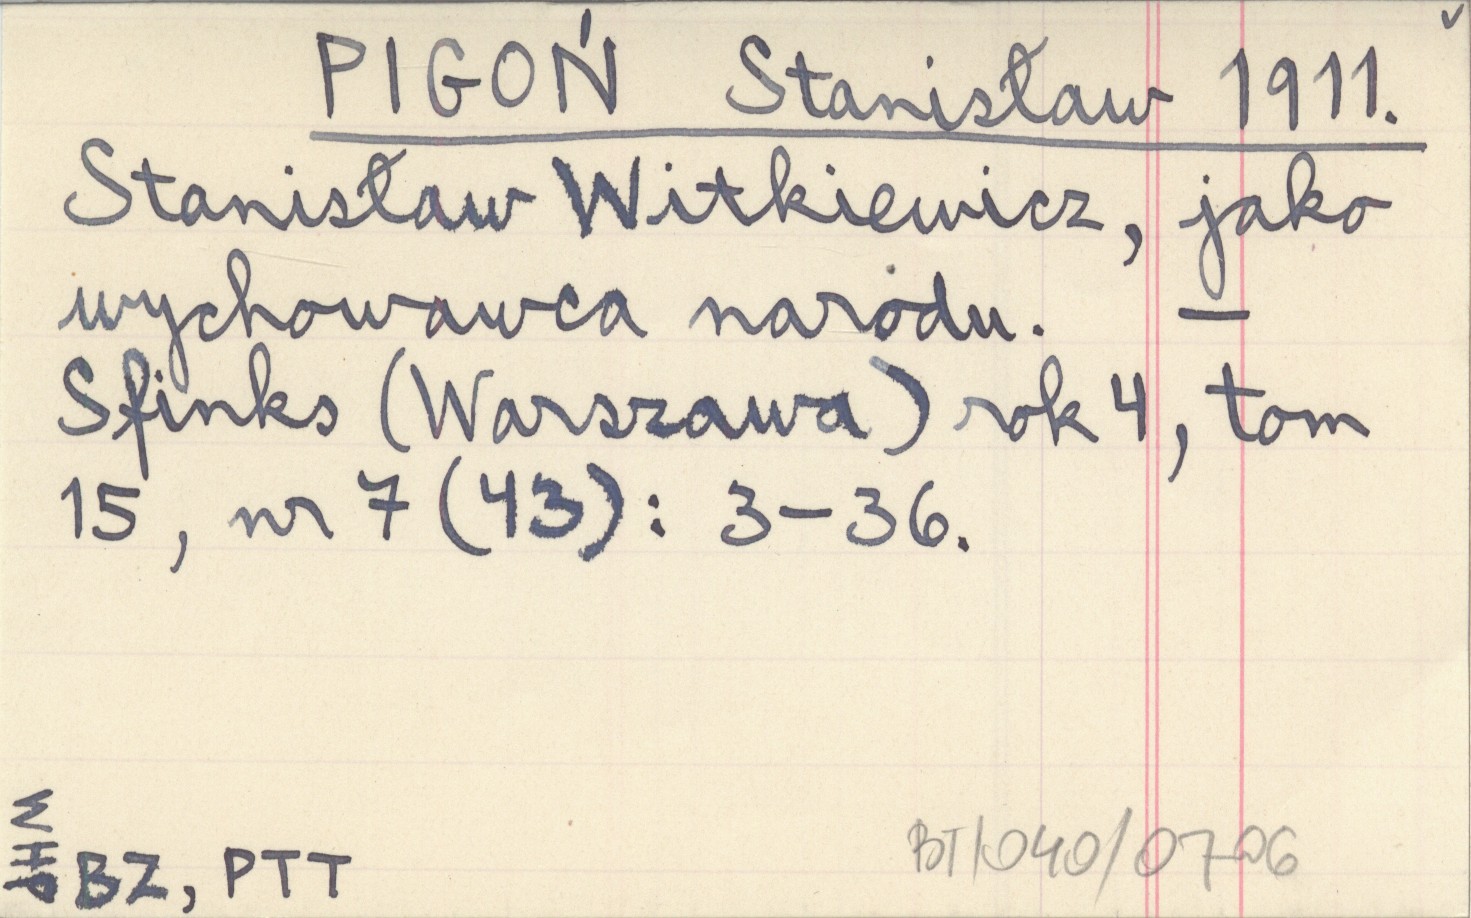 PIGOŃ Stanisław 1911.
Stanisław Witkiewicz, jako
wychowawca narodu. —
Sfinks (Warszawa) rok 4, tom
15, nr 7 (43): 3—36.
BZ, PTT